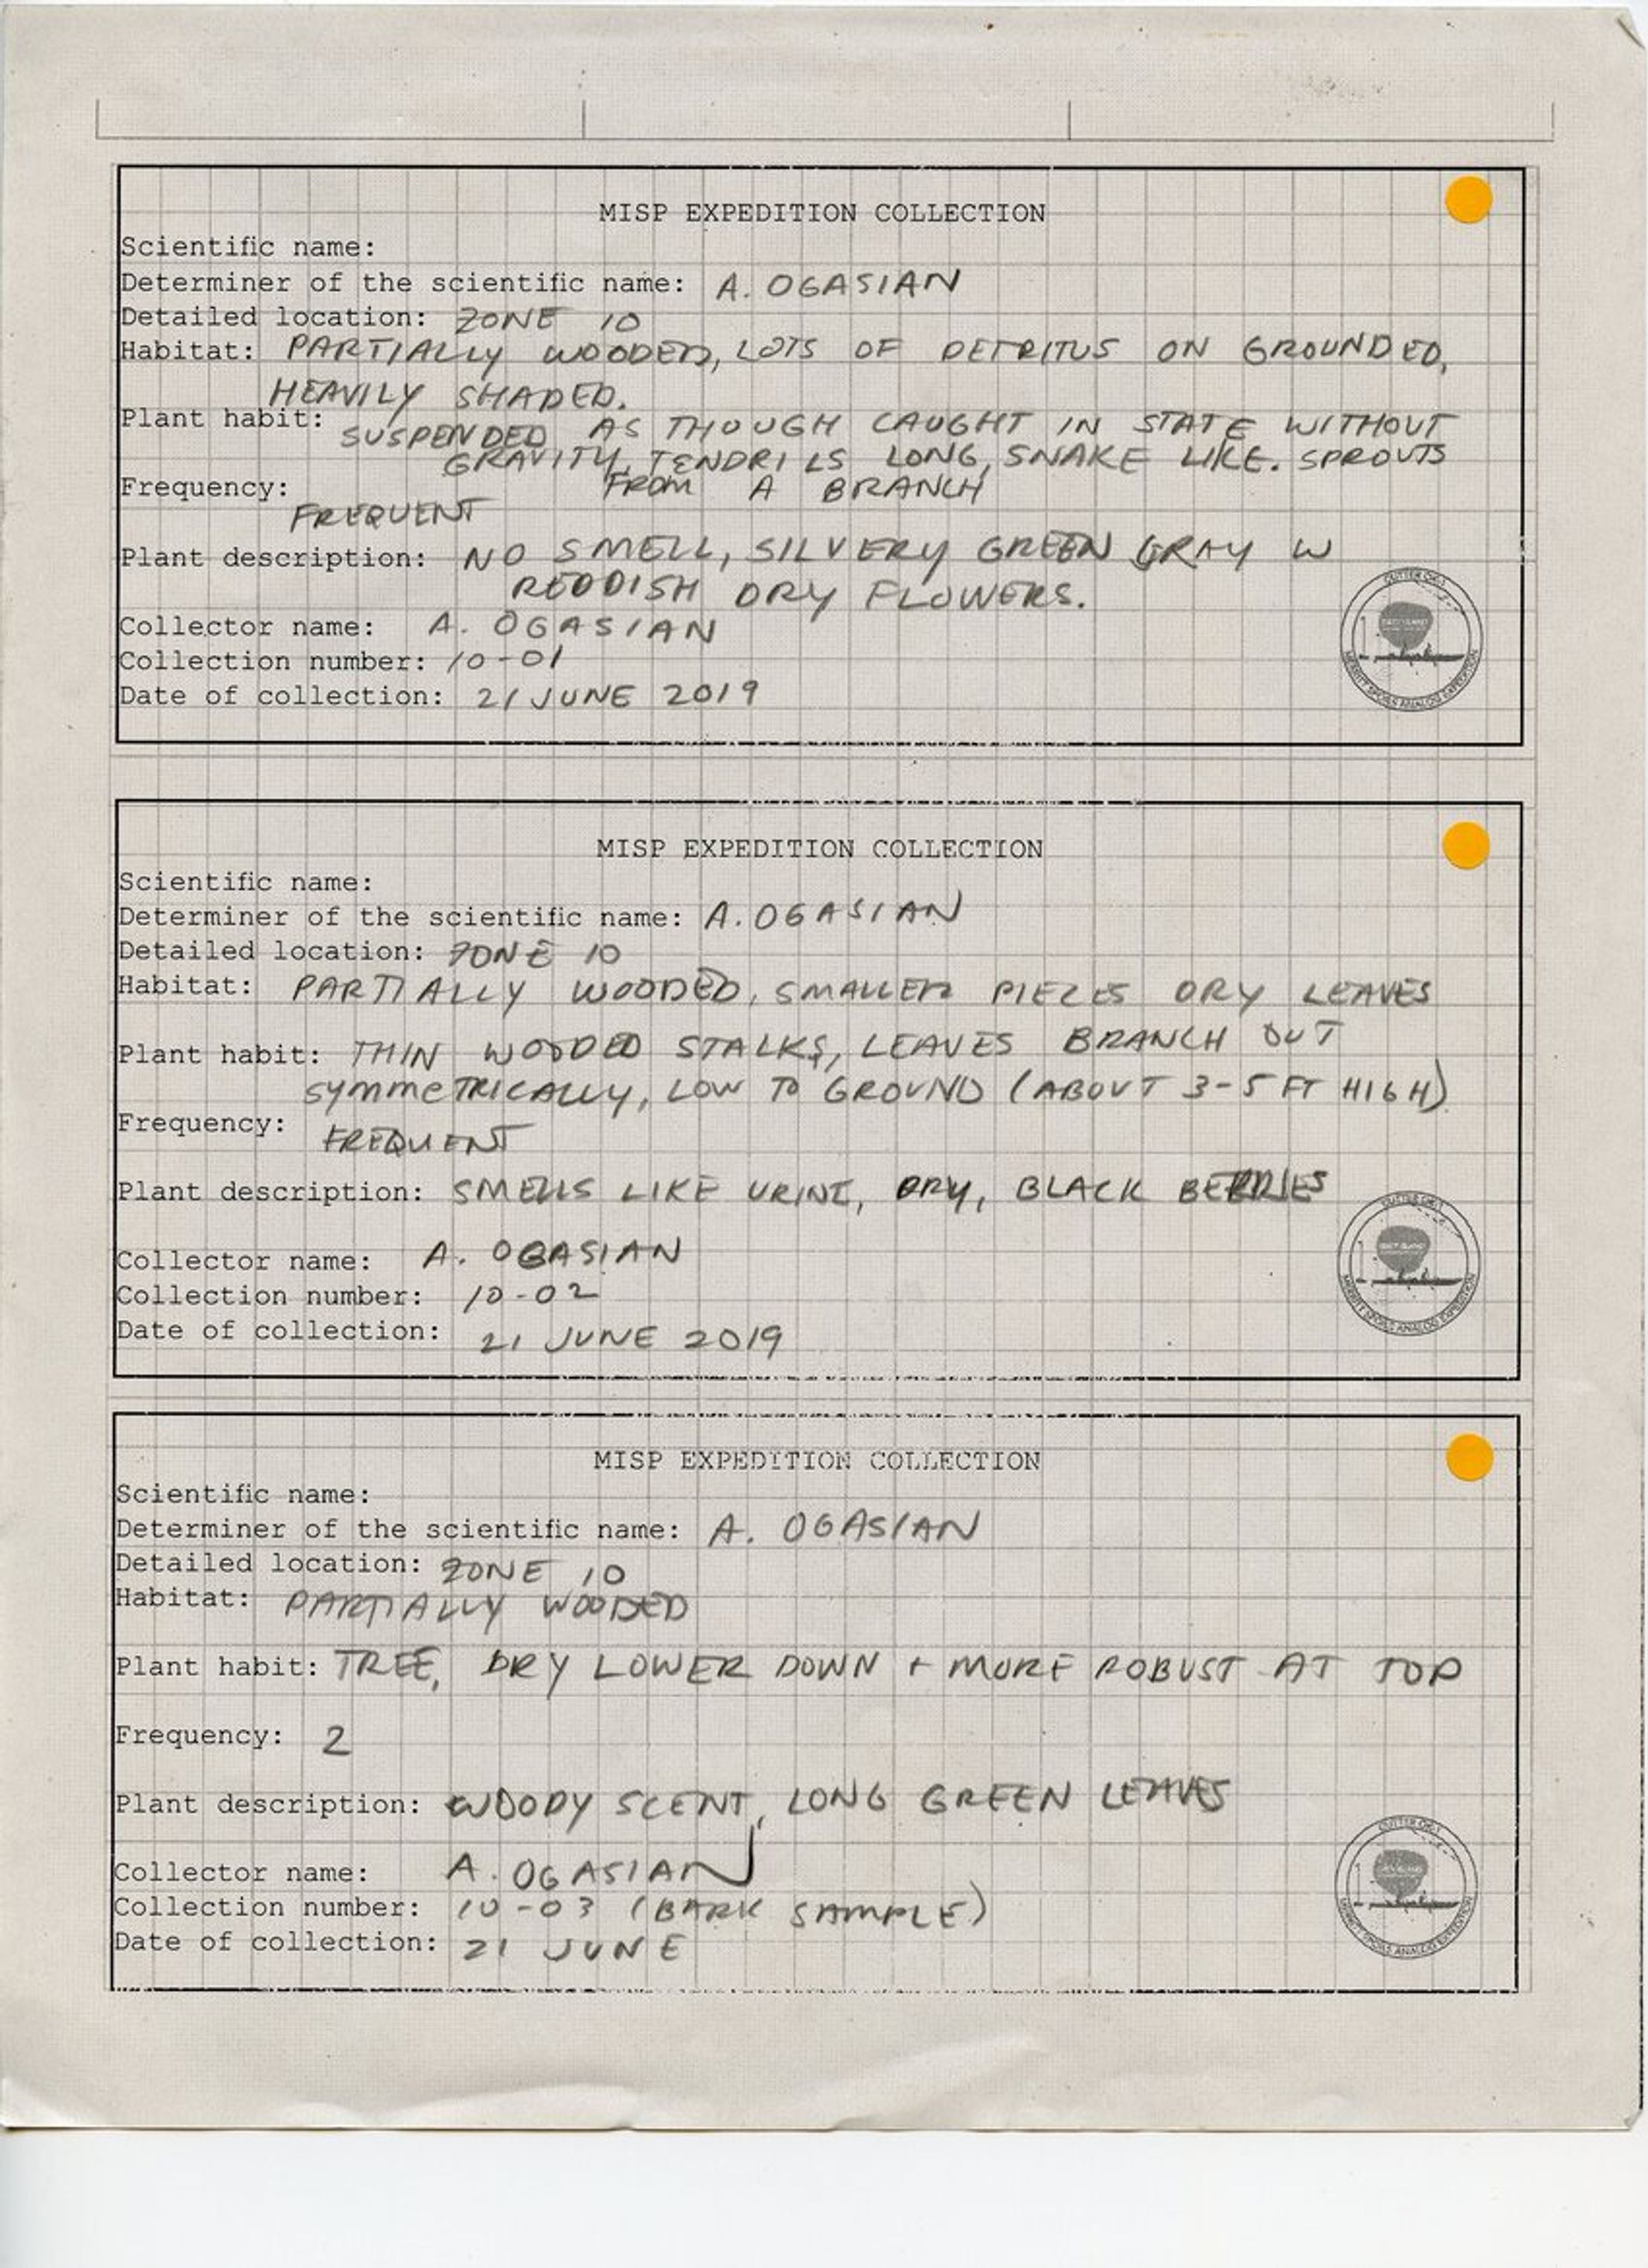 MISP EXPEDITION COLLECTION
Scientific name:
Determiner of the scientific name: A. OGASIAN
Detailed location: ZONE 10
Habitat: PARTIALLY WOODED, LOTS OF DETRITUS ON GROUNDED,
HEAVILY SHADED.
Plant habit: SUSPENDED AS THOUGH CAUGHT IN STATE WITHOUT
GRAVITY, TENDRILS LONG, SNAKE LIKE. SPROUTS
FROM A BRANCH
Frequency:
FREQUENT
Plant description: NO SMELL, SILVERY GREEN GRAY W
REDDISH DRY FLOWERS.
Collector name: A. OGASIAN
Collection number: 10-01
Date of collection: 21 JUNE 2019
CUTTER CKI-1
MERRITT SPOILS ANALOG EXPEDITION
MISP EXPEDITION COLLECTION
Scientific name:
Determiner of the scientific name: A. OGASIAN
Detailed location: ZONE 10
Habitat: PARTIALLY WOODED, SMALLER PIECES DRY LEAVES
Plant habit: THIN WOODED STALKS, LEAVES BRANCH OUT
SYMMETRICALLY, LOW TO GROUND (ABOUT 3-5 FT HIGH)
Frequency: FREQUENT
Plant description: SMELLS LIKE URINE, DRY, BLACK BERRIES
Collector name: A. OGASIAN
Collection number: 10-02
Date of collection: 21 JUNE 2019
MERRITT SPOILS ANALOG EXPEDITION
MISP EXPEDITION COLLECTION
Scientific name:
Determiner of the scientific name: A. OGASIAN
Detailed location: ZONE 10
Habitat: PARTIALLY WOODED
Plant habit: TREE, DRY LOWER DOWN + MORE ROBUST AT TOP
Frequency: 2
Plant description: WOODY SCENT, LONG GREEN LEAVES
Collector name: A. OGASIAN
Collection number: 10-03 (BARK SAMPLE)
Date of collection: 21 JUNE
MERRITT SPOILS ANALOG EXPEDITION